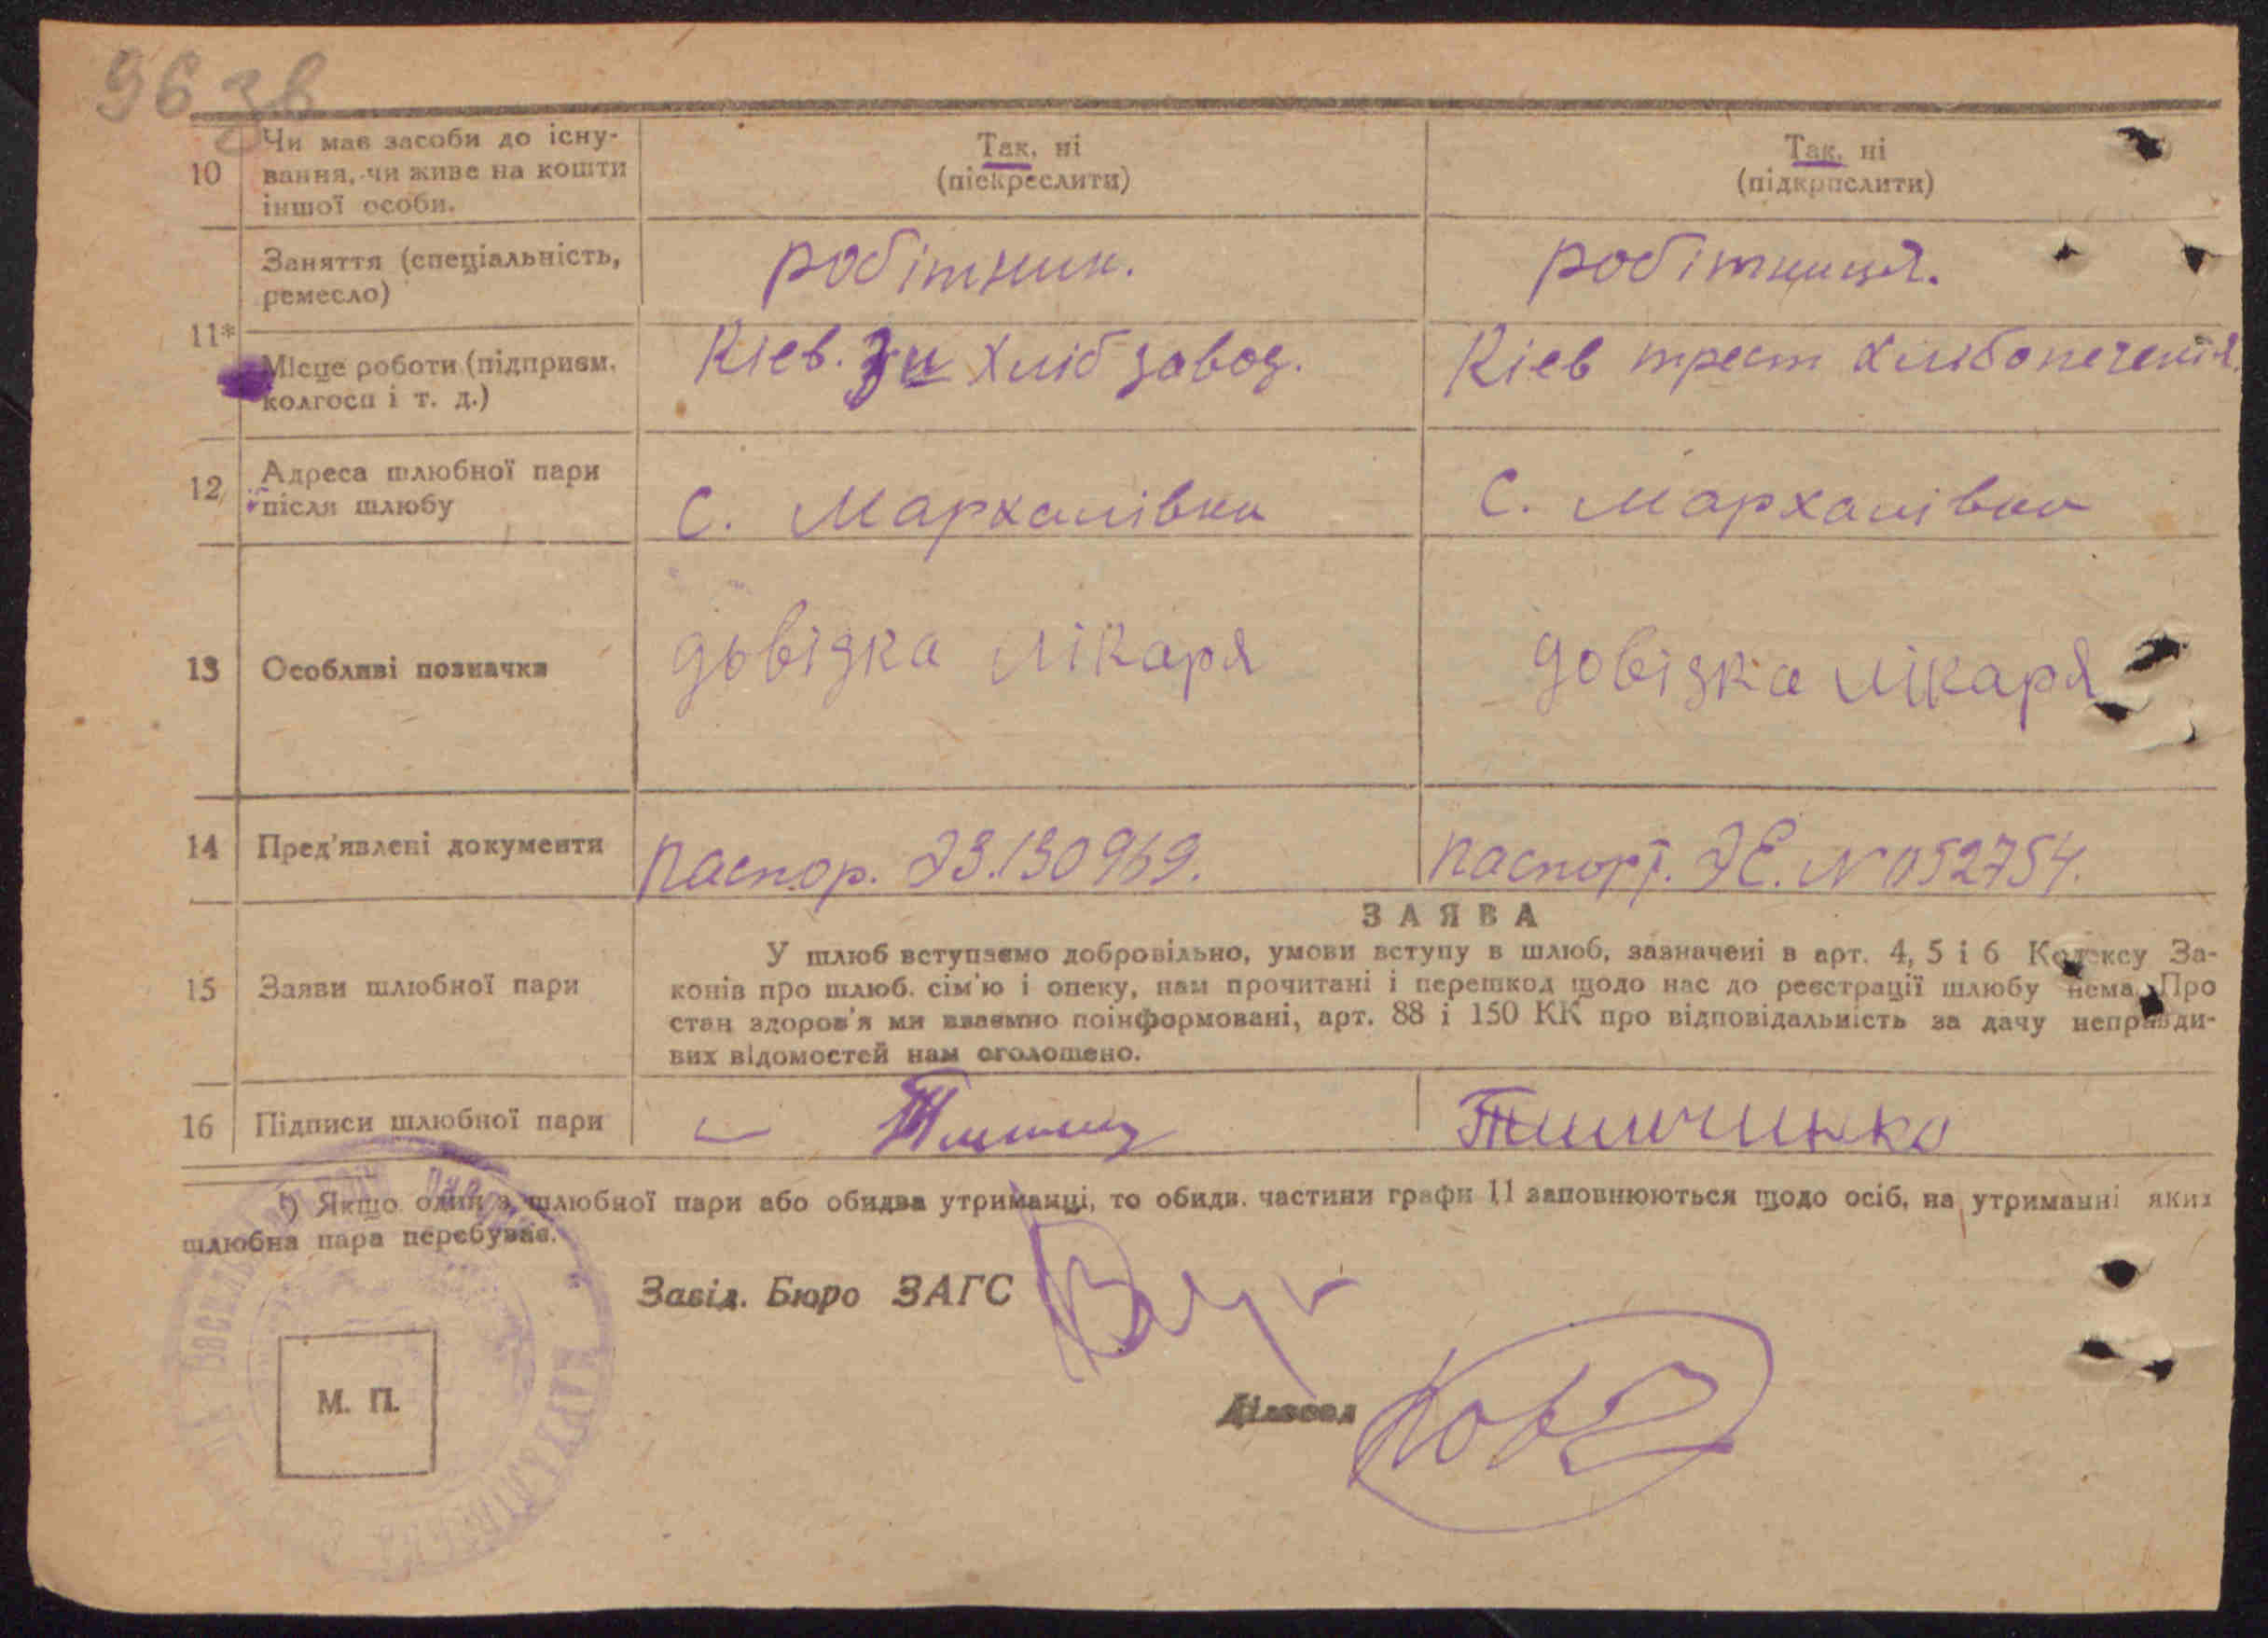 96 зв
10 Чи має засоби до існу-
вання, чи живе на кошти
іншої особи.
Так, ні
(піскреслити)
Так, ні
(підкрислити)
11*
Заняття (спеціальність,
ремесло)
робітник.
робітниця.
Місце роботи (підприєм.
колгосп і т. д.)
Кієв. хліб завод.
Кієв трест хлібопеченія.
12 Адреса шлюбної пари
після шлюбу
С. Мархалівка
С. Мархалівка
13 Особливі позначки
довідка лікаря
довідка лікаря
14 Пред'явлені документи
паспор.
паспорт. N 052754.
15 Заяви шлюбної пари
ЗАЯВА
У шлюб вступаємо добровільно, умови вступу в шлюб, зазначені в арт. 4, 5 і 6 Кодексу За-
конів про шлюб. сім'ю і опеку, нам прочитані і перешкод щодо нас до реєстрації шлюбу нема. Про
стан здоров'я ми взаємно поінформовані, арт. 88 і 150 КК про відповідальність за дачу неправди-
вих відомостей нам оголошено.
16 Підписи шлюбної пари
¹) Якщо один з шлюбної пари або обидва утриманці, то обидв. частини графи 11 заповнюються щодо осіб, на утриманні яких
шлюбна пара перебуває.
Завід. Бюро ЗАГС
Діловод
М. П.